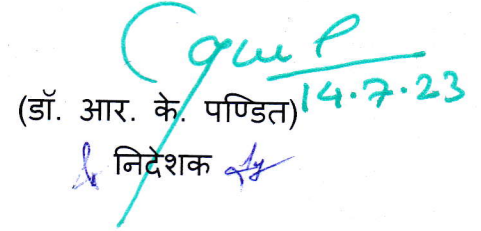 14.7.23
(डॉ. आर. के. पण्डित)
निदेशक